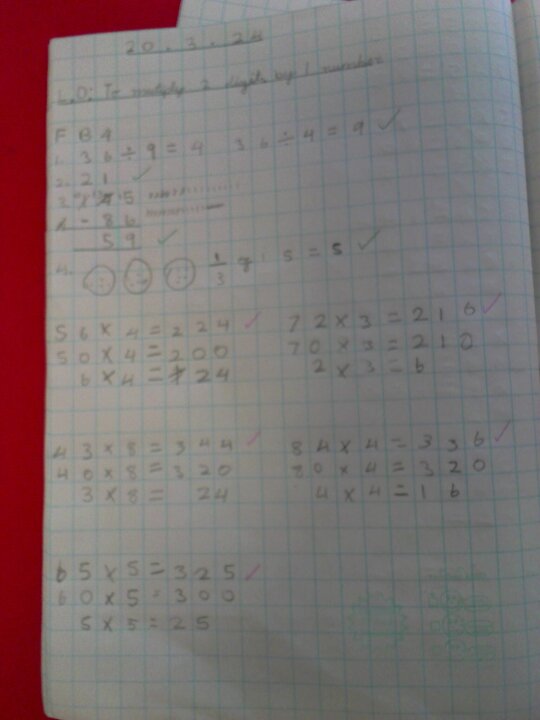 20.3.24
L.O: To multiply 2 digits by 1 number
F B 4
1. 36 ÷ 9 = 4 36 ÷ 4 = 9 ✓
2. 21 ✓
- 86
59 ✓
4. 1/3 5 = 5 ✓
56 × 4 = 224 ✓ 72 × 3 = 216 ✓
50 × 4 = 200 70 × 3 = 210
6 × 4 = 24 2 × 3 = 6
43 × 8 = 344 ✓ 84 × 4 = 336 ✓
40 × 8 = 320 80 × 4 = 320
3 × 8 = 24 4 × 4 = 16
65 × 5 = 325 ✓
60 × 5 = 300
5 × 5 = 25